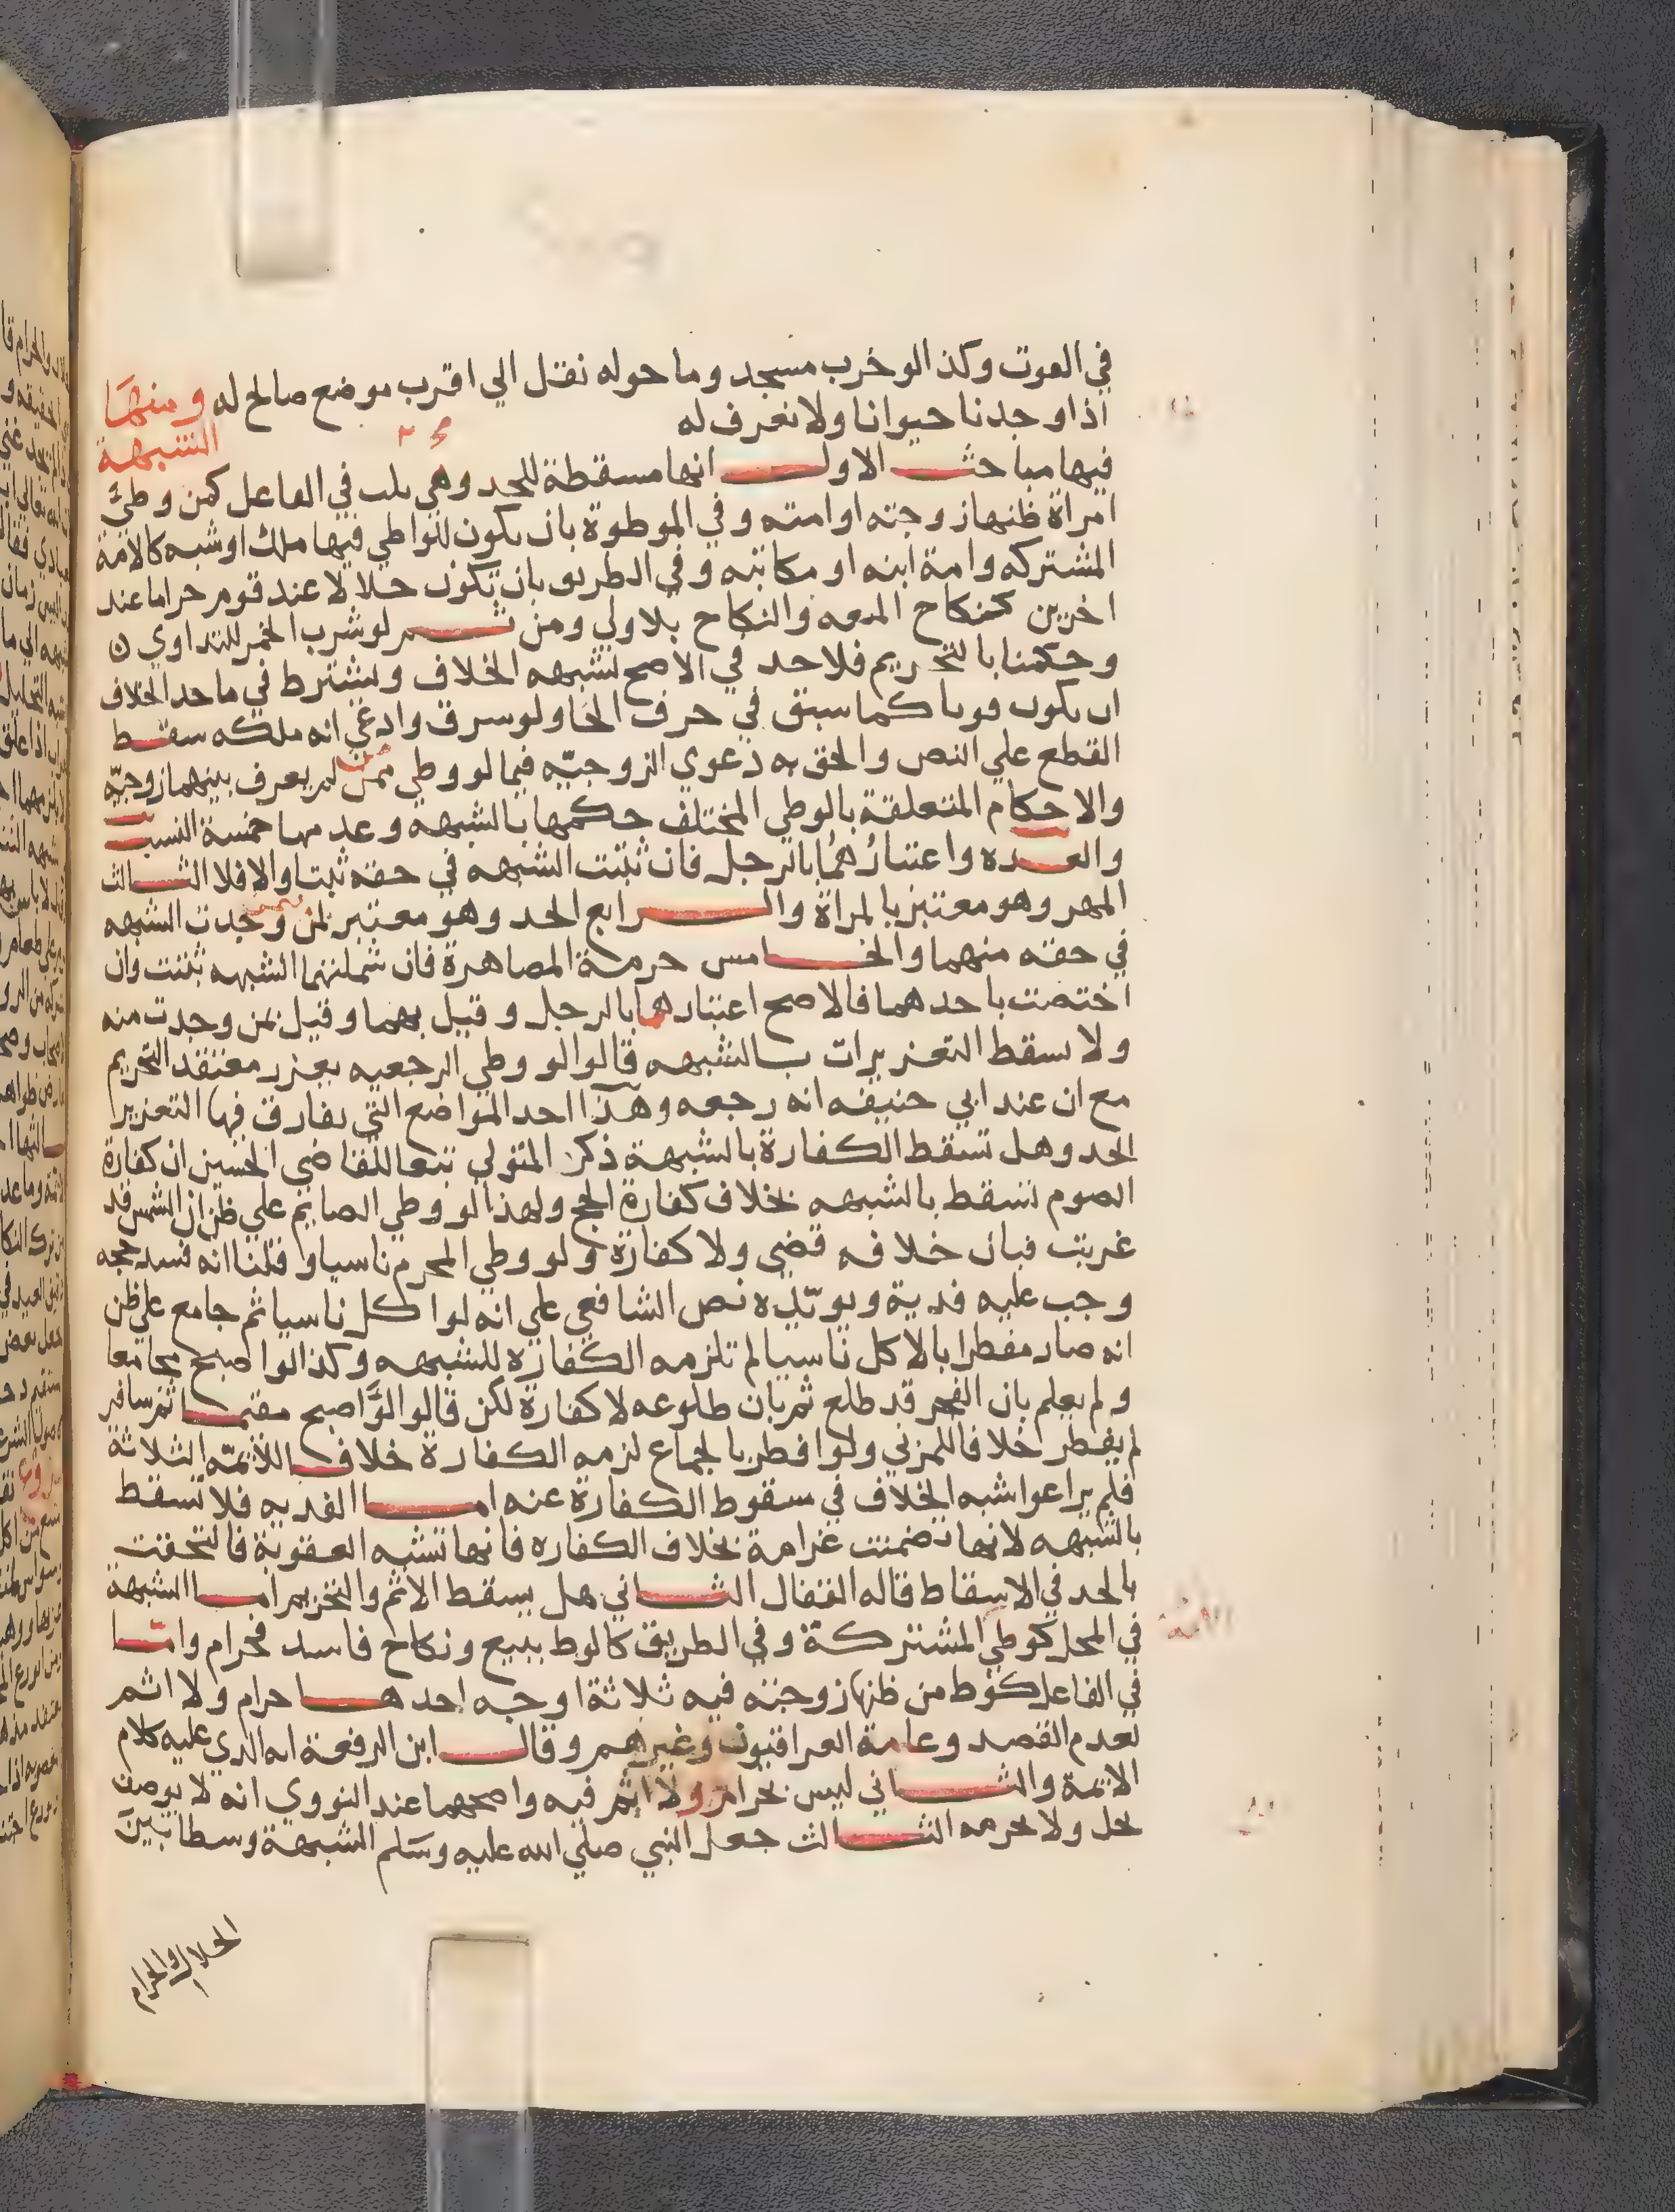 في العوت وكذا لو خرب مسجد وما حوله نقل الي اقرب موضع صالح له ومنها
اذا وجدنا حيوانا ولا نعرف له
الشبهة
فيها مباحث الاول انها مسقطة للحد وهي ثلث في الفاعل كمن وطئ
امراة ظنها زوجته او امته وفي الموطوة بان يكون للواطي فيها ملك او شبه كالامة
المشتركه وامة ابنه او مكاتبته وفي الطريق بان يكون حلالا عند قوم حراما عند
اخرين كنكاح المتعه والنكاح بلا ولي ومن ثم لو شرب الخمر للتداوي
وحكمنا بالتحريم فلا حد في الاصح لشبهه الخلاف ويشترط في ماحد الخلاف
ان يكون قويا كما سبق في حرف الخا ولو سرق وادعي انه ملكه سقط
القطع علي النص والحق به دعوي الزوجيه فيما لو وطي من لم يعرف بينهما زوجيه
والاحكام المتعلقة بالوطي المختلف حكمها بالشبهه وعد منها خمسة النسب
والعده واعتبارهما بالرجل فان ثبتت الشبهه في حقه ثبتا والا فلا الثالث
المهر وهو معتبر بالمراة والرابع الحد وهو معتبر بمن وجدت الشبهه
في حقه منهما والخامس حرمة المصاهرة فان شملتهما الشبهه ثبتت وان
اختصت باحدهما فالاصح اعتبارها بالرجل وقيل بهما وقيل بمن وجدت منه
ولا يسقط التعزيرات بالشبهه قالوا لو وطي الرجعيه يعزر معتقد التحريم
مع ان عند ابي حنيفه انه رجعه وهذا احد المواضع التي يفارق فيها التعزير
الحد وهل تسقط الكفارة بالشبهة ذكر المتولي تبعا للقاضي الحسين ان كفارة
الصوم تسقط بالشبهه بخلاف كفارة الحج ولهذا لو وطي الصايم علي ظن ان الشمس قد
غربت فبان خلافه قضي ولا كفارة ولو وطي المحرم ناسيا وقلنا انه فسد حجه
وجب عليه فدية ويويده نص الشافعي علي انه لو اكل ناسيا ثم جامع علي ظن
انه صار مفطرا بالاكل ناسيا لم تلزمه الكفارة للشبهه وكذا لو اصبح مجامعا
ولم يعلم بان الفجر قد طلع ثم بان طلوعه لا كفارة لكن قالوا لو اصبح مقيما ثم سافر
لم يفطر خلافا للمزني ولو افطر بالجماع لزمه الكفارة خلافا للايمه الثلاثة
فلم يراعوا شبه الخلاف في سقوط الكفارة عنه اما الفديه فلا تسقط
بالشبهه لانها تضمنت غرامة بخلاف الكفاره فانها تشبه العقوبة فالتحقت
بالحد في الاسقاط قاله القفال الثاني هل يسقط الاثم والتحريم اما الشبهة
في المحل كوطي المشتركة وفي الطريق كالوط ببيع ونكاح فاسد فحرام واما
في الفاعل كوط من ظنها زوجته فيه ثلاثة اوجه احدها حرام ولا اثم
لعدم القصد وعامة العراقيون وغيرهم وقال ابن الرفعة انه الذي عليه كلام
الايمة والثاني ليس بحرام ولا اثم فيه واصحهما عند النووي انه لا يوصف
بحل ولا بحرمه الثالث جعل النبي صلي الله عليه وسلم الشبهة وسطا بين
الحلال والحرام